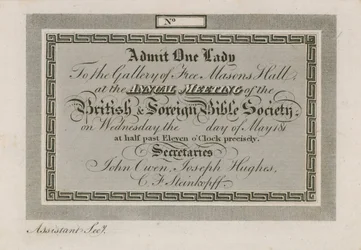 No
Admit One Lady
To the Gallery of Free Masons Hall
at the ANNUAL MEETING of the
British & Foreign Bible Society,
on Wednesday the day of May 181
at half past Eleven o'Clock precisely.
Secretaries
John Owen, Joseph Hughes,
C. F. Steinkopff.
Assistant Secy.